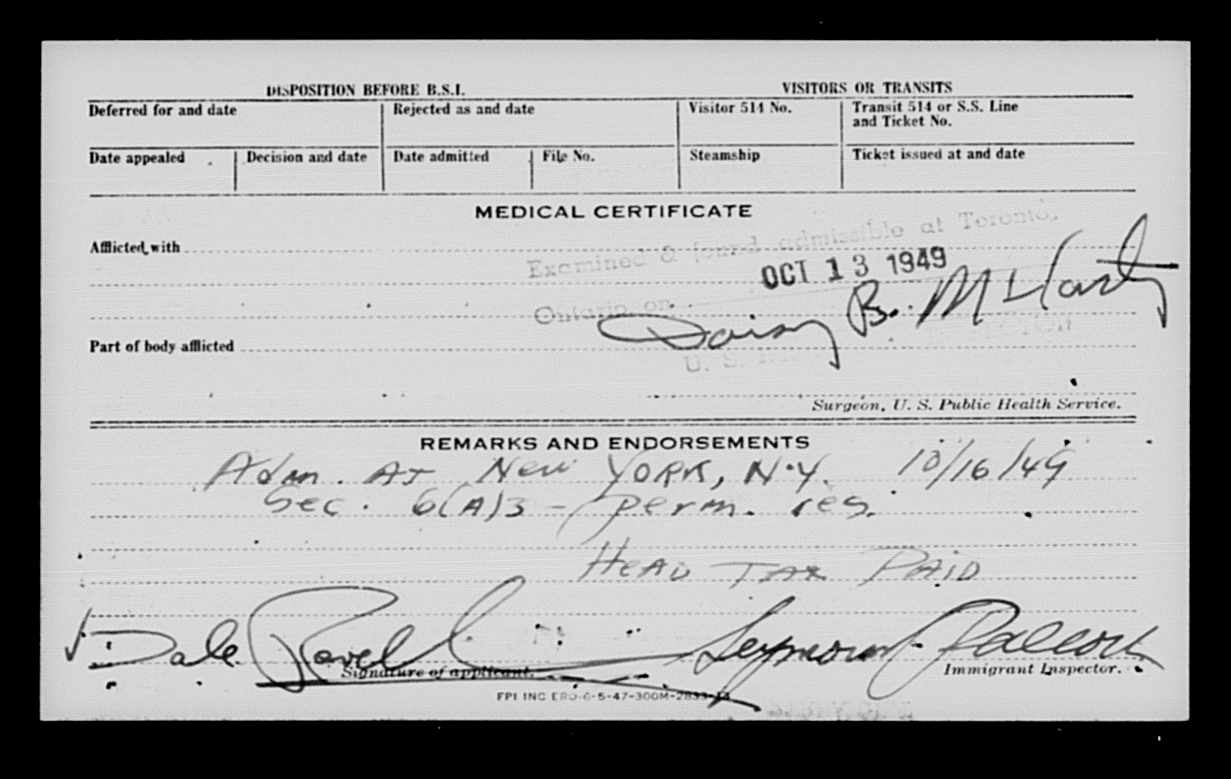 DISPOSITION BEFORE B.S.I. VISITORS OR TRANSITS
Deferred for and date Rejected as and date Visitor 514 No. Transit 514 or S.S. Line and Ticket No.
Date appealed Decision and date Date admitted File No. Steamship Ticket issued at and date
MEDICAL CERTIFICATE
Afflicted with
Examined & found admissible at Toronto,
OCT 13 1949
Ontario on
Daisy B. McHarty
Part of body afflicted
U. S.
Surgeon, U. S. Public Health Service.
REMARKS AND ENDORSEMENTS
Adm. At New York, N.Y. 10/16/49
Sec. 6(A)3 - perm. res.
Head Tax Paid
Dale Seymour
Signature of applicant. Immigrant Inspector.
FPI INC 6-5-47-300M-2833